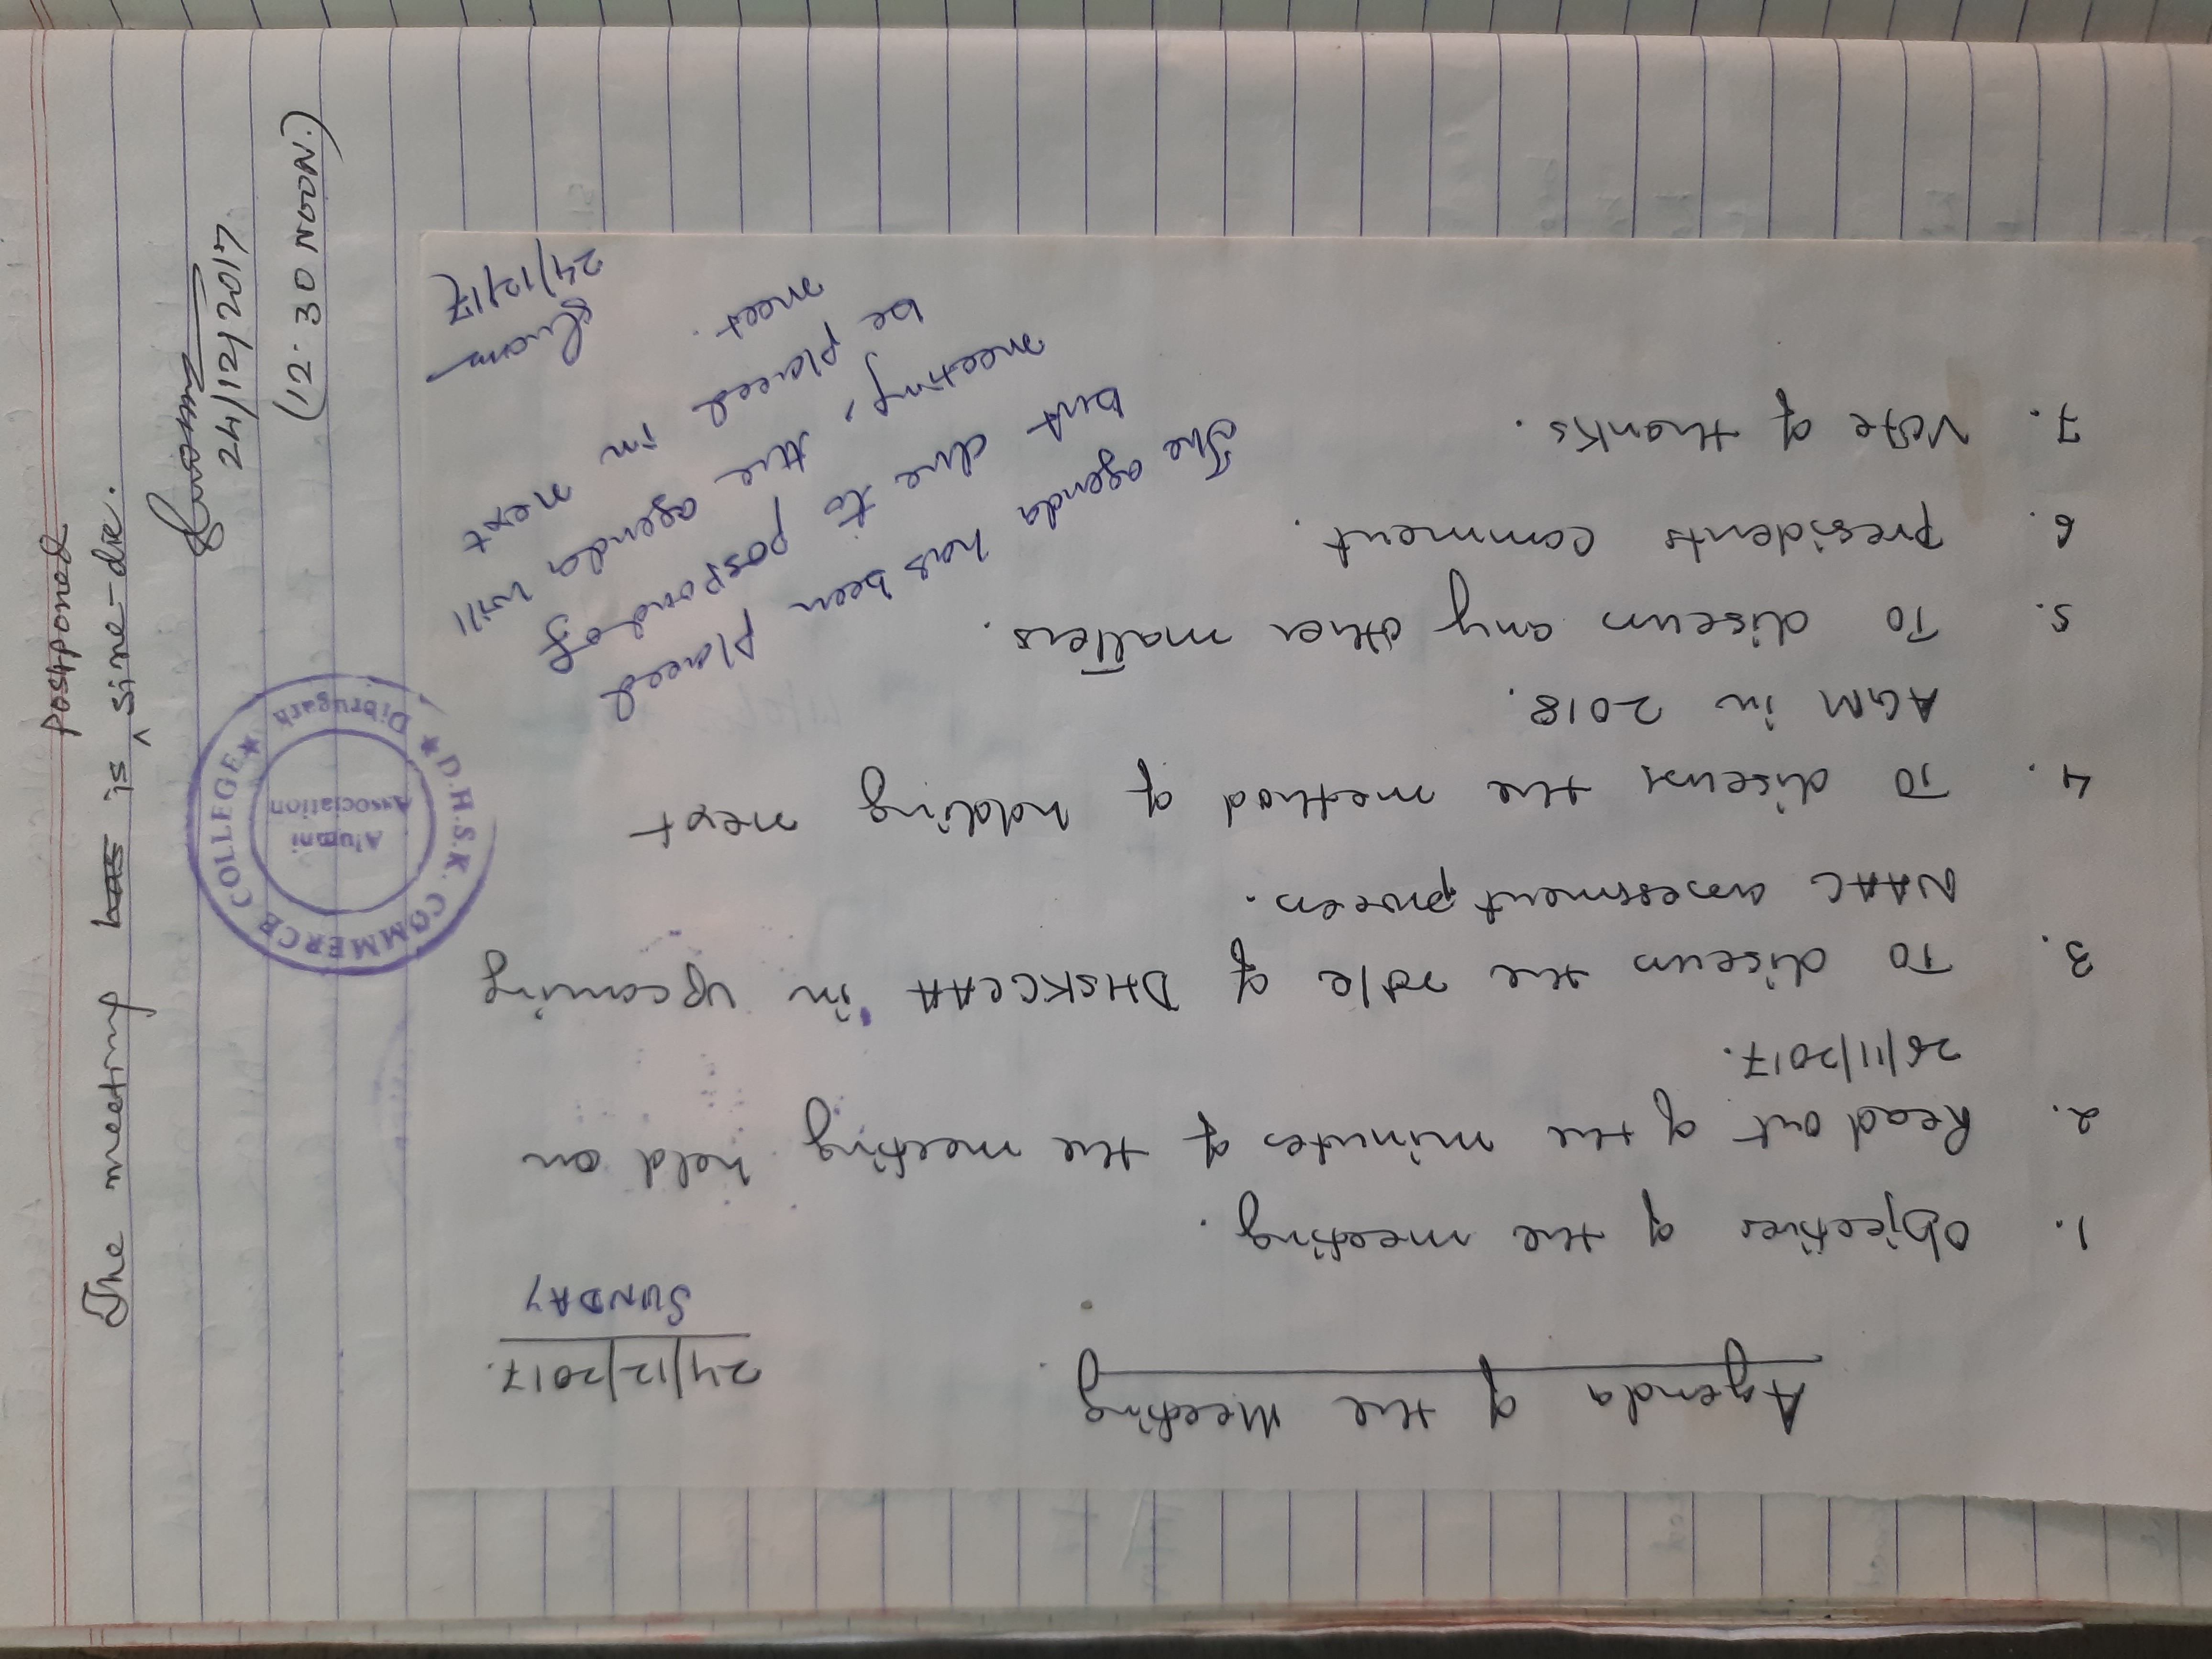 The meeting has is postponed sine-die.
24/12/2017
(12.30 NOON.)
D.H.S.K. COMMERCE COLLEGE
★ Dibrugarh ★
Alumni
Association
Agenda of the Meeting.
24/12/2017.
SUNDAY
1. Objectives of the meeting.
2. Read out of the minutes of the meeting held on
26/11/2017.
3. To discuss the role of DHSKCCAA in upcoming
NAAC assessment process.
4. To discuss the method of holding next
AGM in 2018.
5. To discuss any other matters.
6. Presidents comment.
7. Vote of thanks.
The agenda has been placed
but due to posponed of
meeting, the agenda will
be placed in next
meet.
24/12/17